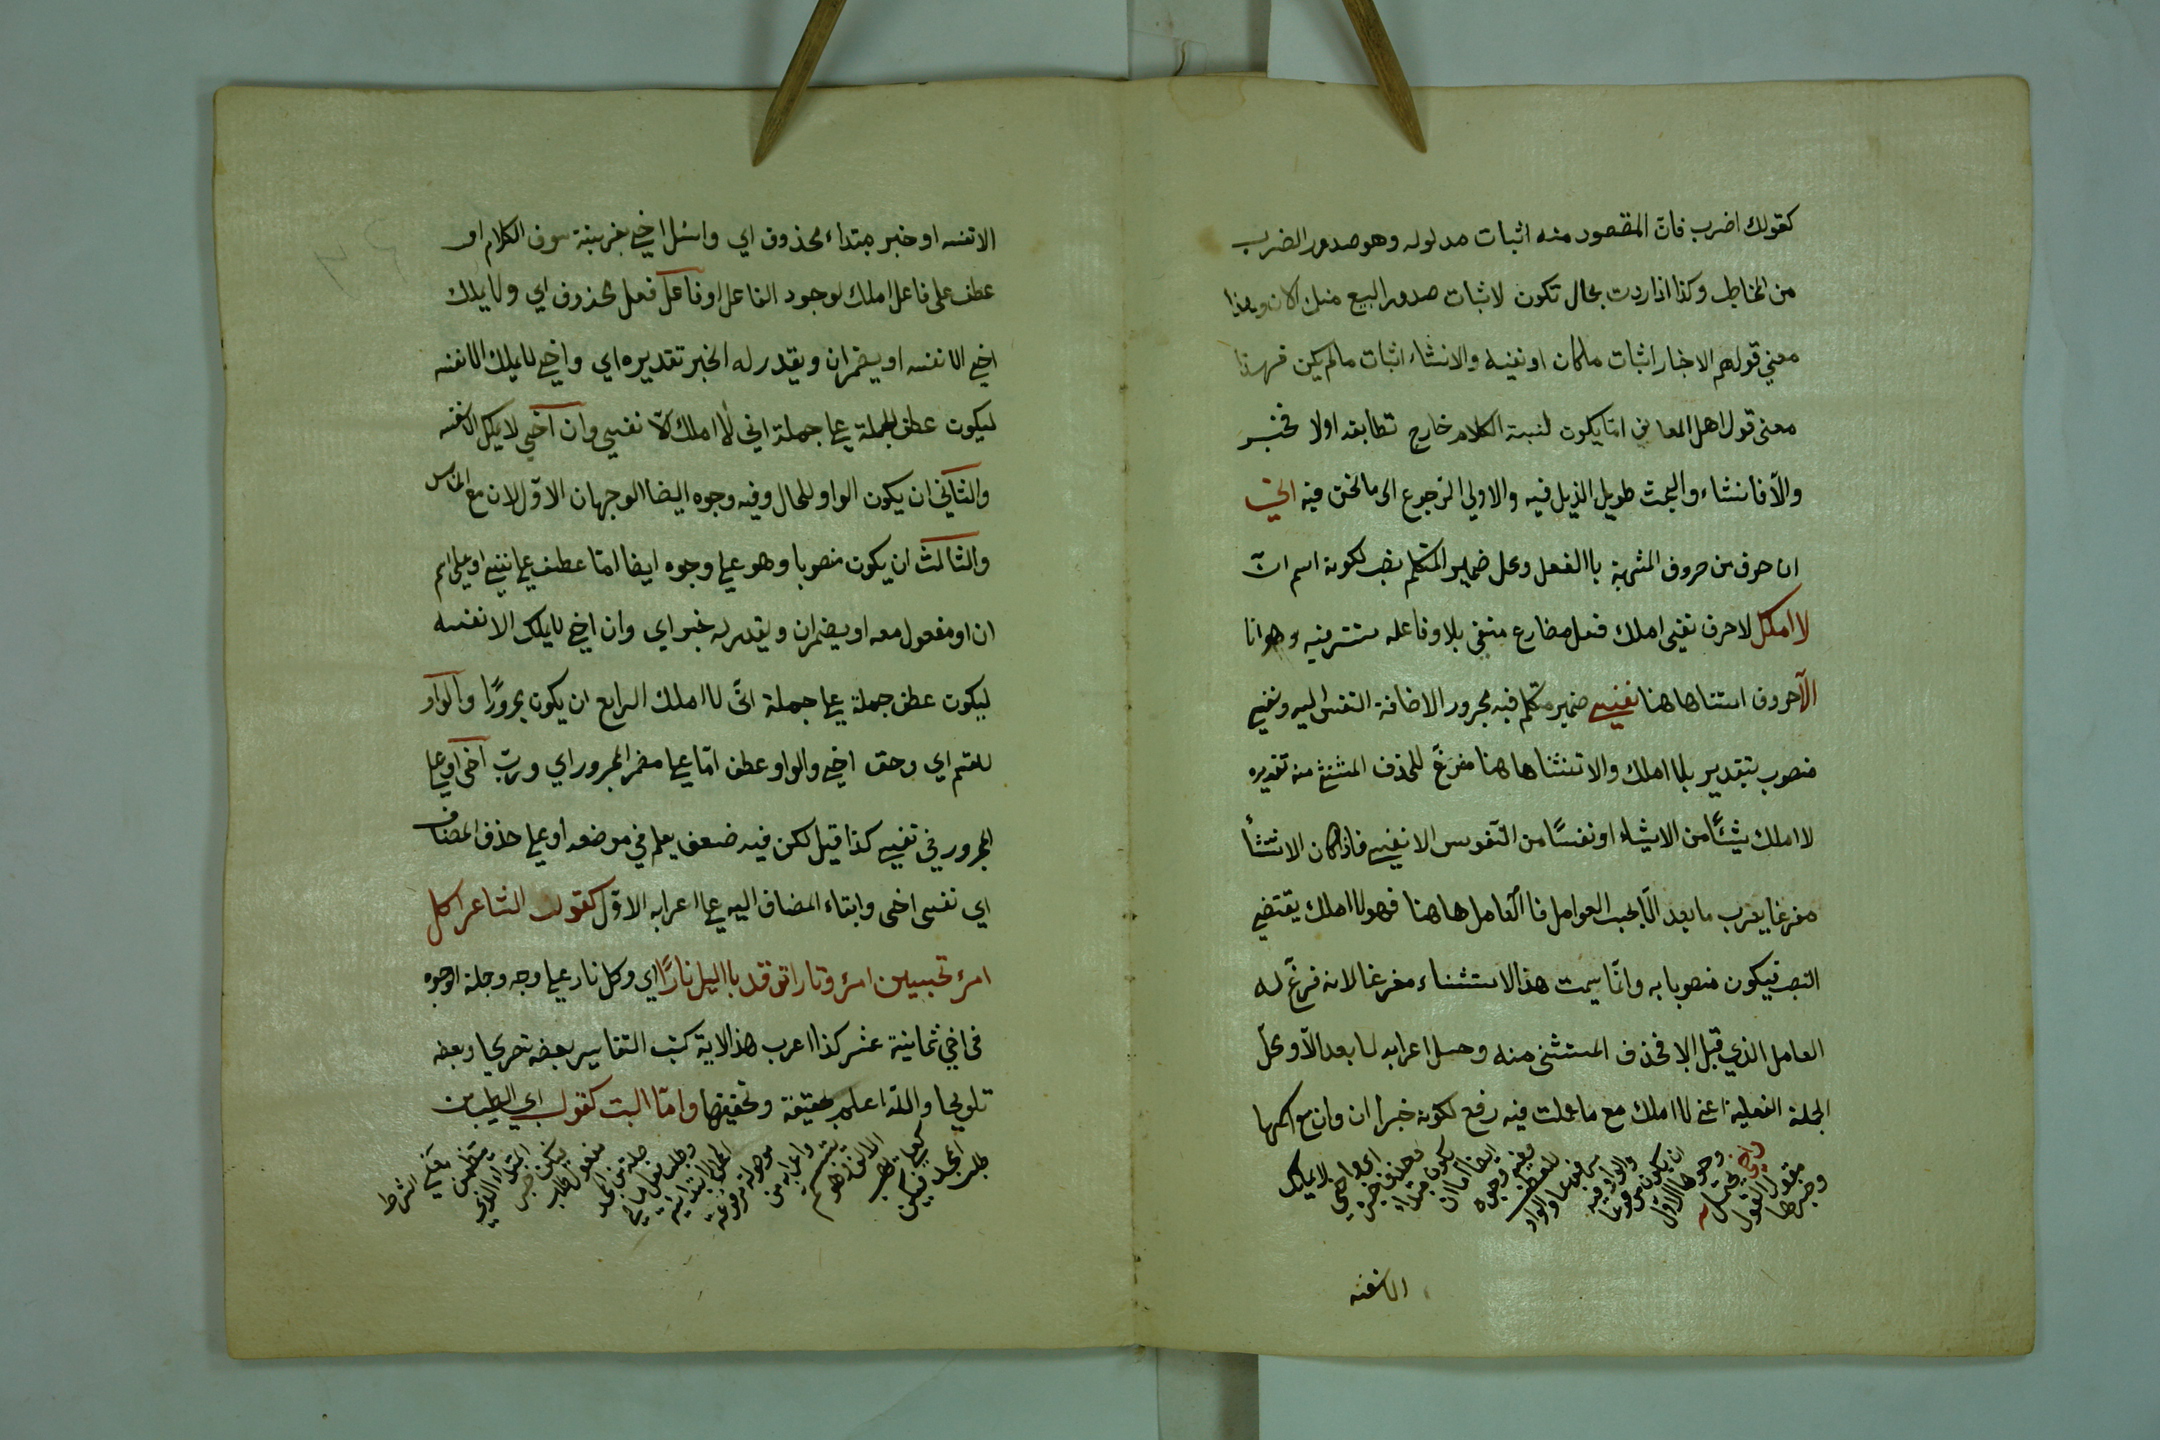 كقولك اضرب فان المقصود منه اثبات مدلوله وهو صدور الضرب
من المخاطب وكذا اذا اردت بحال تكون لاثبات صدور البيع منك الان وهذا
معني قولهم الاخبار اثبات ما كان او نفيه والانشاء اثبات مالم يكن فهذا
معنى قول اهل المعاني اما يكون لنسبة الكلام خارج تطابقه اولا فخبر
والّا فانشاء والبحث طويل الذيل فيه والاولي الرجوع الى ما نحن فيه اني
ان حرف من حروف المشبهة باالفعل ومحل ضمير المتكلم نصب لكونه اسم انّ
لا املك لا حرف نفي املك فعل مضارع منفي بلا وفاعله مستتر فيه وهو انا
الّا حروف استثنا هاهنا نفسي ضمير متكلم فيه مجرور الاضافة النفس اليه ونفسي
منصوب بتقدير بلا املك والاستثنا هاهنا مفرغ للحذف المستثنى منه تقديره
لا املك شيئًا من الاشياء او نفسًا من النفوس الا نفسي فاذا كان الاستثنأ
مفرغا يعرب ما بعد الّا بحسب العوامل فا العامل هاهنا فهو لا املك يقتضي
النصب فيكون منصوبا به وانّما سميت هذا الاستثناء مفرغا لانه فرغ له
العامل الذي قبل الا فحذف المستثنى منه وحصل اعرابه لما بعد الّا ومحل
الجملة الفعلية اعني لا املك مع ما عملت فيه رفع لكونه خبر ان وان مع اسمها
وخبرها مقول القول واخي يحتمل وجوها الاول ان يكون مرفوعا والواو فيه للعطف وفيه وجوه ايضا اما ان يكون مبتداء محذوف خبره اي واخي لا يملك
الا نفسه
الا نفسه او خبر مبتداء محذوف اي واسئل اخي بقرينة سوق الكلام او
عطف على فاعل املك لوجود الفاعل او فاعل فعل محذوف اي ولا يملك
اخي الا نفسه او يضمر ان ويقدر له الخبر تقديره اي واخي لا يملك الا نفسه
ليكون عطف الجملة على جملة اني لا املك الّا نفسي وان اخي لا يملك الا نفسه
والثاني ان يكون الواو للحال وفيه وجوه ايضا الوجهان الاوّلان مع الخامس
والثالث ان يكون منصوبا وهو على وجوه ايضا امّا عطف على نفسي او على اسم
ان او مفعول معه او يضمر ان ويقدر له خبر اي وان اخي لا يملك الا نفسه
ليكون عطف جملة على جملة انّى لا املك الرابع ان يكون مجرورًا والواو
للقسم اي وحق اخي والواو عطف امّا على مضمر المجرور اي وربّ اخى او على
المجرور في نفسي كذا قيل لكن فيه ضعف يعلم في موضعه او على حذف المضاف
اي نفسى اخى وابقاء المضاف اليه على اعرابه الاوّل كقول الشاعر اكل
امرئ تحسبين امرئ ونار توقد بااليل نارًا اي وكل نار على وجه وجملة الوجوه
فى اخي ثمانية عشر كذا اعرب هذ الاية كتب التفاسير بعضه تصريحا وبعضه
تلويحا واللّه اعلم بحقيقة وتحقيقها وامّا البت كقول ابي الطيب من